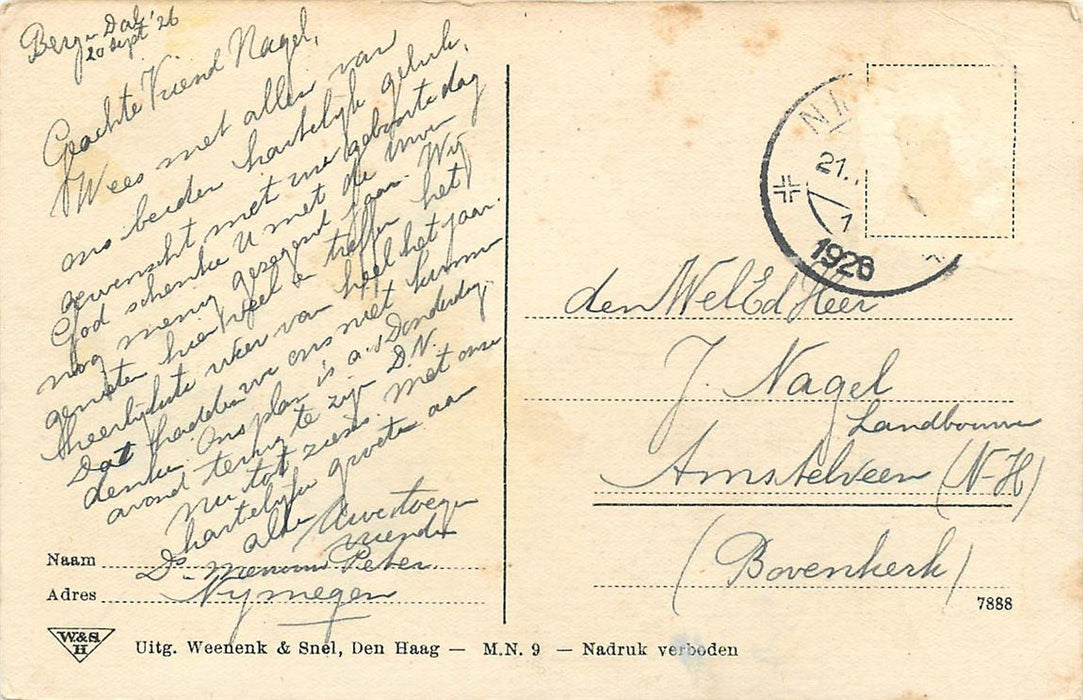 Berg n Dal
20 Sept '26
Geachte Vriend Nagel,
Wees met allen van
ons beiden hartelijk geluk,
gewenscht met uw geboortedag
God schenke U met de uwen
nog menig gezegend jaar. Wij
genieten hier veel en treffen het
heerlijkste weer van heel het jaar.
Dat hadden we ons niet kunnen
denken. Ons plan is a.s. Donderdag
avond terug te zijn D.V.
Nu tot ziens. Met onze
hartelijke groeten aan
allen Uwe
vrienden
Ds.
Nijmegen
Naam
Adres
W.&S.
H
Uitg. Weenenk & Snel, Den Haag — M.N. 9 — Nadruk verboden
NI
21.
1
1926
den WelEd Heer
J. Nagel
Landbouwer
Amstelveen (N-H)
(Bovenkerk)
7888